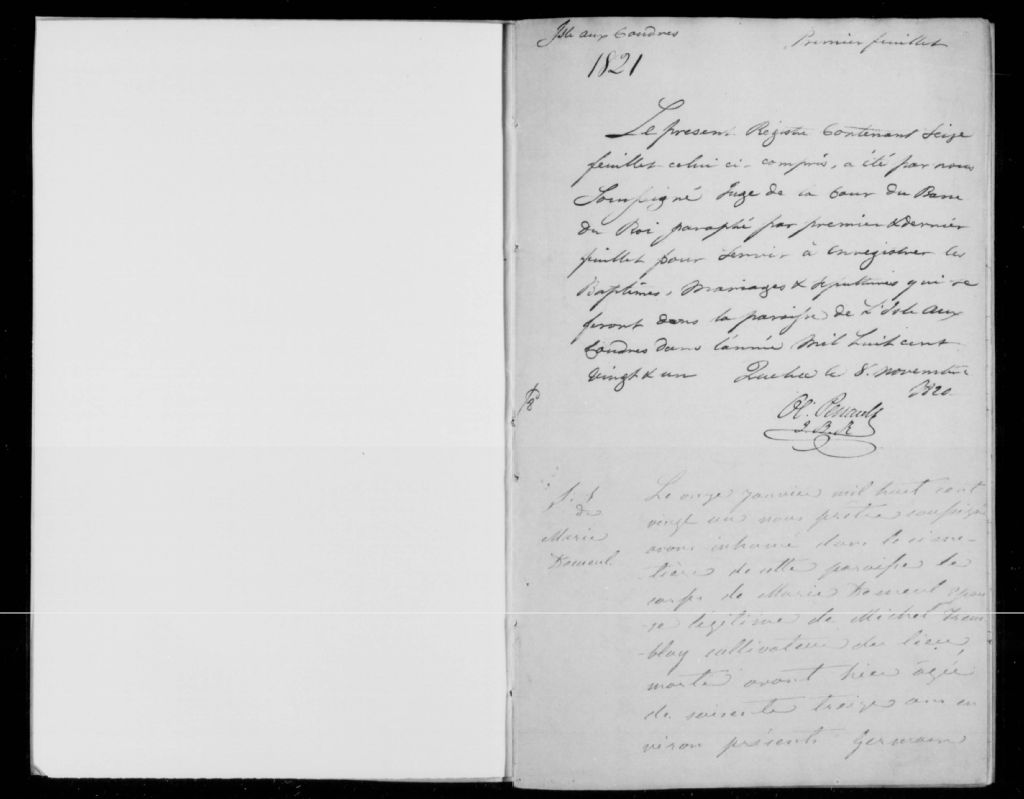 Isle aux Coudres
Premier feuillet
1821
Le present Registre Contenant Seize
feuillet celui ci compris, a été par nous
Soussigné Juge de la Cour du Banc
du Roi paraphé par premier & dernier
feuillet pour servir à Enregistrer les
Baptêmes, Mariages & sépultures qui se
feront dans la paroisse de L'Isle aux
Coudres dans l'année Mil huit cent
vingt & un Quebec le 8. novembre
1820
Ol. Perrault
J.B.R
S. 1
de
Marie
Le onze janvier mil huit cent
vingt un nous prêtre soussigné
avons inhumé dans le cime-
tière de cette paroisse le
corps de Marie épou-
-se légitime de Michel Trem-
-blay cultivateur du lieu,
morte avant hier âgée
de soixente treize ans en
viron présents Germain